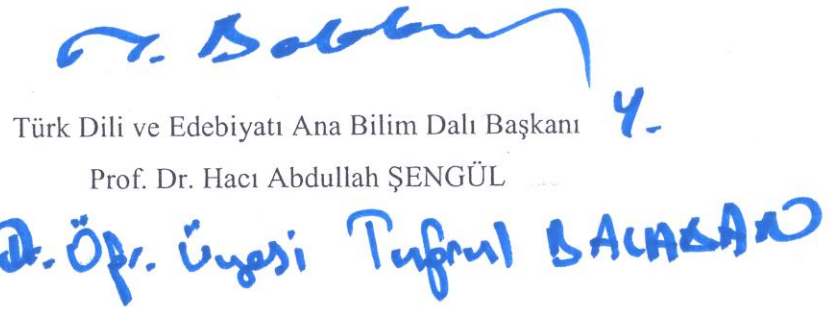 Türk Dili ve Edebiyatı Ana Bilim Dalı Başkanı Y.
Prof. Dr. Hacı Abdullah ŞENGÜL
Dr. Öğr. Üyesi Tuğrul BALABAN